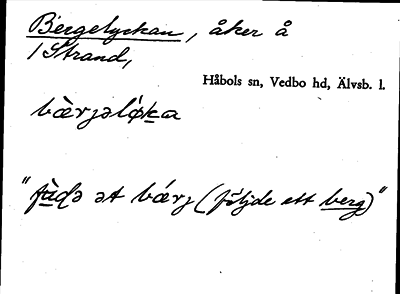 Bergelyckan, åker å
1 Strand,
Håbols sn, Vedbo hd, Älvsb. l.
bæ̀rjəlø̀ka
ət bǽrj (följde ett berg)"